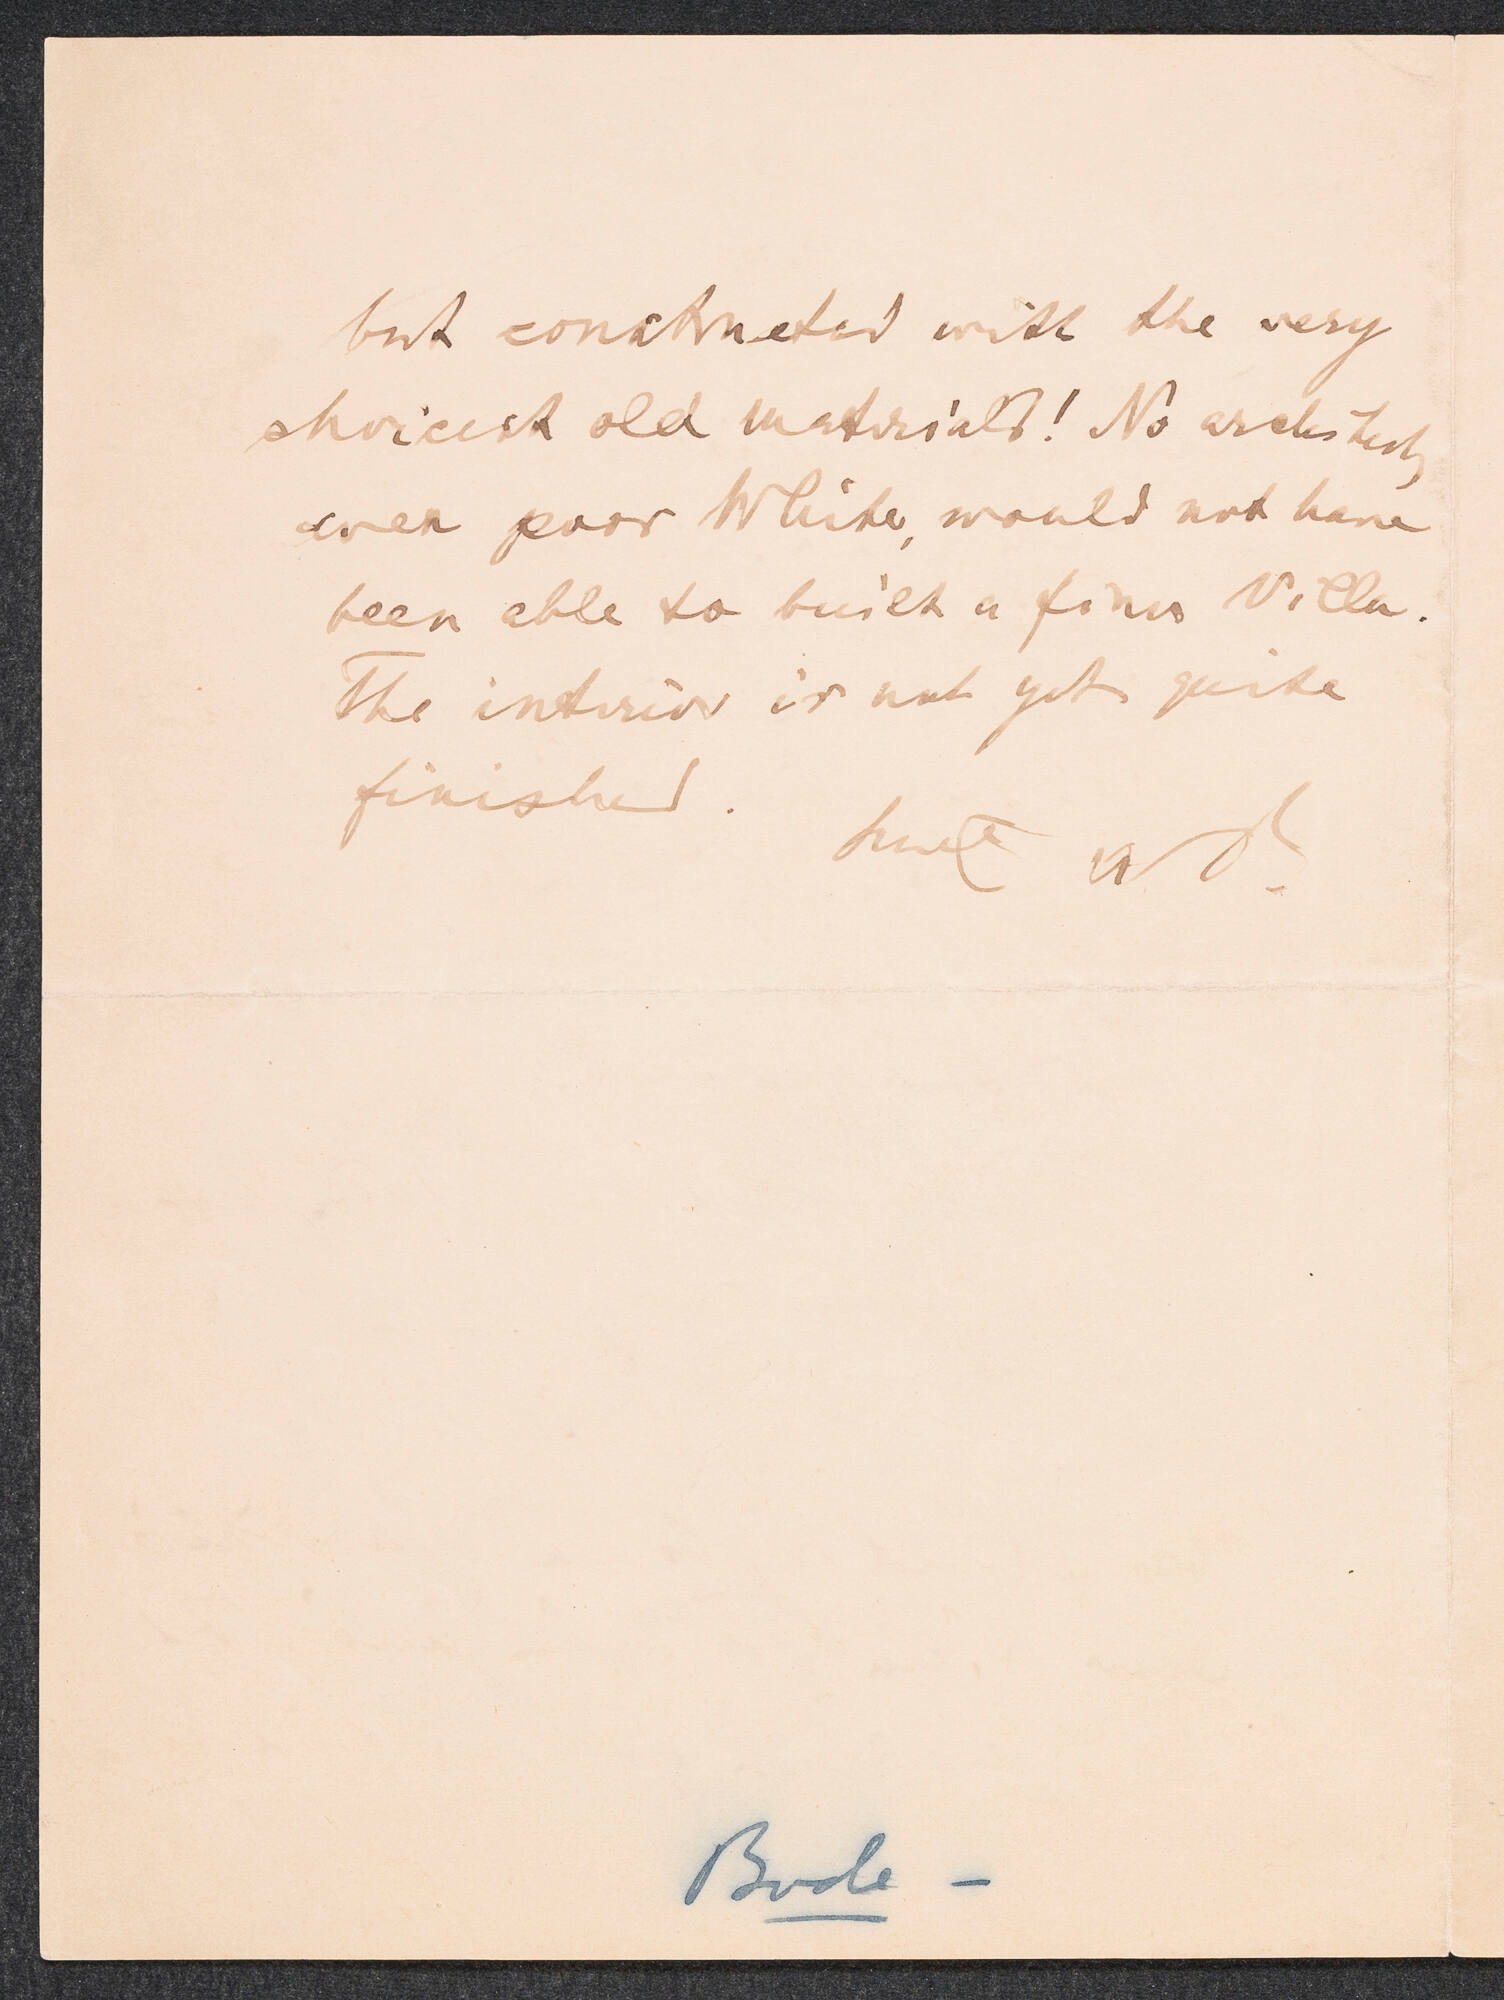 but constructed with the very
choicest old materials! No architect,
even poor White, would not have
been able to built a finer Villa.
The interior is not yet quite
finished.
Bode -